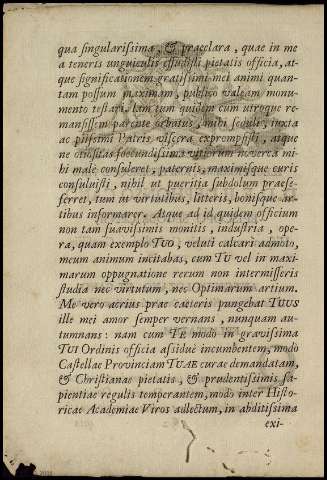 qua singularissima, & praeclara, quae in me
a teneris unguiculis effudisti pietatis officia, at-
que significationem gratissimi mei animi quan-
tam possum maximam, publico valeam monu-
mento testari. Iam tum quidem cum utroque re-
mansissem parente orbatus, mihi sedulò, iuxta
ac piissimi Patris viscera exprompsisti, atque
ne otiositas foecundissima vitiorum noverca mi-
hi male consuleret, paternis, maximisque curis
consuluisti, nihil ut pueritia subdolum praese-
ferret, tum ut virtutibus, litteris, bonisque ar-
tibus informarer. Atque ad id quidem officium
non tam suavissimis monitis, industria, ope-
ra, quam exemplo TUO, veluti calcari admoto,
meum animum incitabas, cum TU vel in maxi-
marum oppugnatione rerum non intermisseris
studia nec virtutum, nec Optimarum artium.
Me vero acrius prae caeteris pungebat TUUS
ille mei amor semper vernans, nunquam au-
tumnans: nam cum TE modo in gravissima
TUI Ordinis officia assiduè incumbentem, modo
Castellae Provinciam TUAE curae demandatam,
& Christianae pietatis, & prudentissimis sa-
pientiae regulis temperantem, modo inter Histo-
ricae Academiae Viros adlectum, in abditissima
exi-